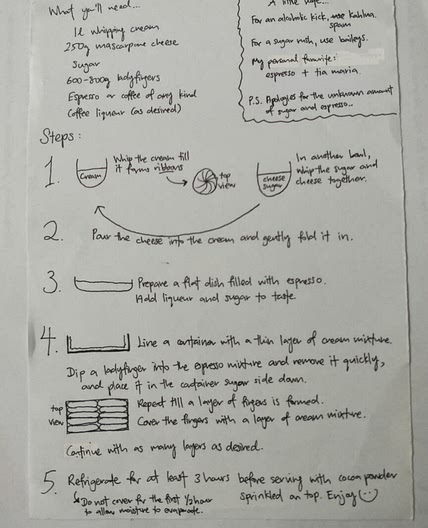 What you'll need...
1l whipping cream
250g mascarpone cheese
Sugar
600-800g ladyfingers
Espresso or coffee of any kind
Coffee liqueur (as desired)
A little
For an alcoholic kick, use Kahlua.
spam
For a sugar rush, use baileys.
My personal favourite:
espresso + tia maria.
P.S. Apologies for the unknown amount
of sugar and espresso..
Steps:
1.
Cream
Whip the cream till
it forms ribbons
top
view
cheese
sugar
In another bowl,
whip the sugar and
cheese together.
2. Pour the cheese into the cream and gently fold it in.
3. Prepare a flat dish filled with espresso.
Add liqueur and sugar to taste.
4. Line a container with a thin layer of cream mixture.
Dip a ladyfinger into the espresso mixture and remove it quickly,
and place it in the container sugar side down.
top
view
Repeat till a layer of fingers is formed.
Cover the fingers with a layer of cream mixture.
Continue with as many layers as desired.
5. Refrigerate for at least 3 hours before serving with cocoa powder
sprinkled on top. Enjoy
Do not cover for the first 1/2 hour
to allow moisture to evaporate.